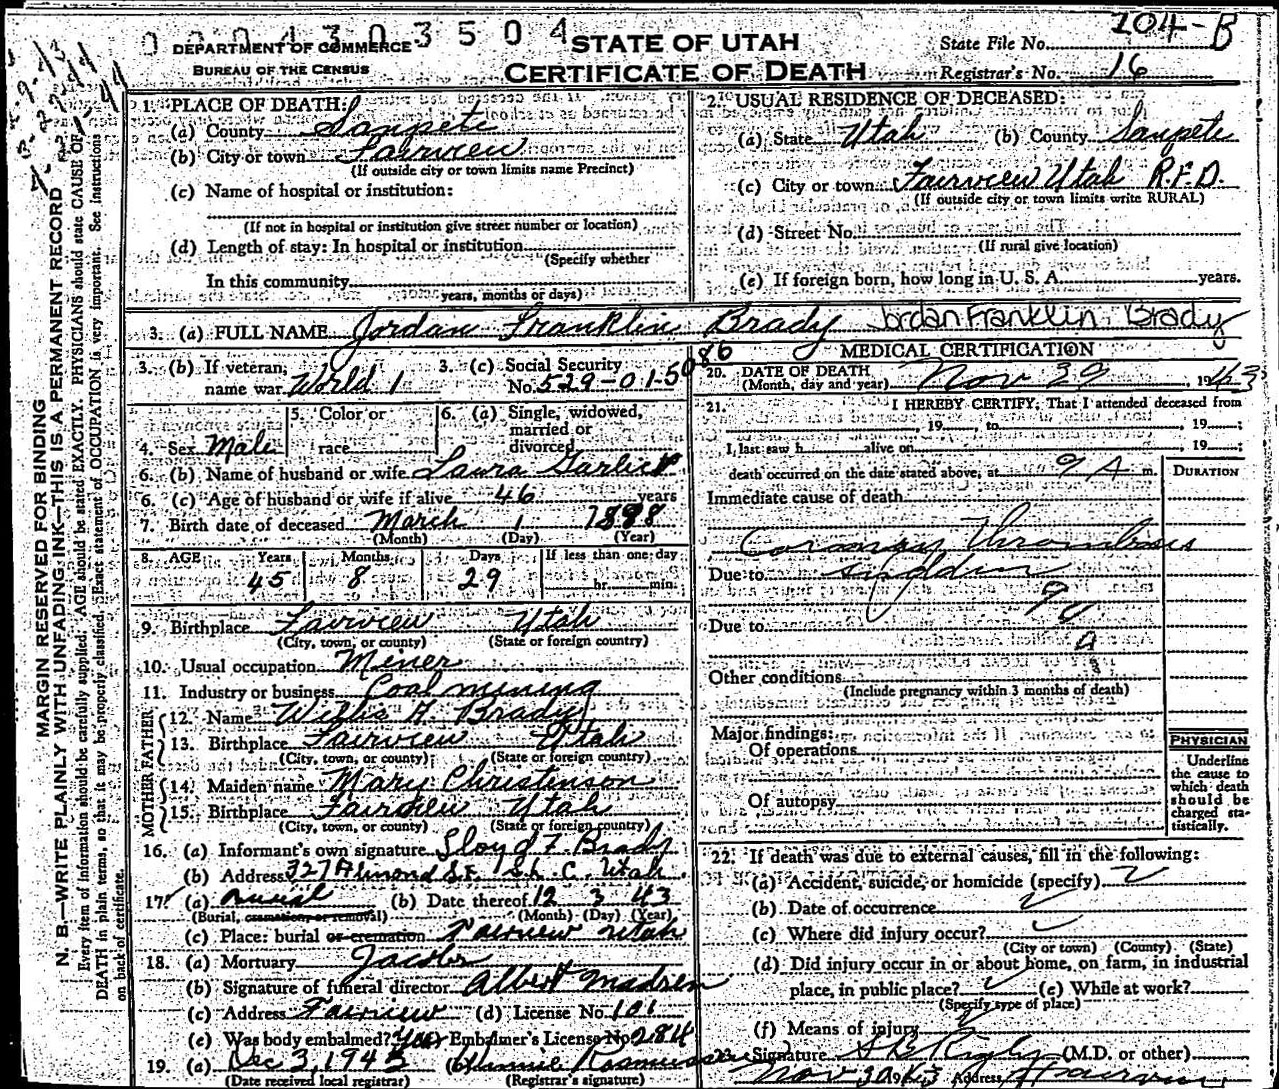 0 0 0 4 3 0 3 5 0 4
104-B
DEPARTMENT OF COMMERCE
BUREAU OF THE CENSUS
STATE OF UTAH
CERTIFICATE OF DEATH
State File No.
Registrar's No. 16
MARGIN RESERVED FOR BINDING
N. B.—WRITE PLAINLY WITH UNFADING INK—THIS IS A PERMANENT RECORD
Every item of information should be carefully supplied. AGE should be stated EXACTLY. PHYSICIANS should state CAUSE OF
DEATH in plain terms, so that it may be properly classified. Exact statement of OCCUPATION is very important. See instructions
on back of certificate.
1. PLACE OF DEATH:
(a) County Sanpete
(b) City or town Fairview
(If outside city or town limits name Precinct)
(c) Name of hospital or institution:
(If not in hospital or institution give street number or location)
(d) Length of stay: In hospital or institution
(Specify whether
In this community
years, months or days)
2. USUAL RESIDENCE OF DECEASED:
(a) State Utah (b) County Sanpete
(c) City or town Fairview Utah R.F.D.
(If outside city or town limits write RURAL)
(d) Street No.
(If rural give location)
(e) If foreign born, how long in U. S. A. years.
3. (a) FULL NAME Jordan Franklin Brady Jordan Franklin Brady
3. (b) If veteran,
name war World 1
3. (c) Social Security
No. 529-01-5086
4. Sex Male
5. Color or
race
6. (a) Single, widowed,
married or
divorced
6. (b) Name of husband or wife Laura Garlick
6. (c) Age of husband or wife if alive 46 years
7. Birth date of deceased March 1 1898
(Month) (Day) (Year)
8. AGE Years Months Days If less than one day
45 8 29 hr. min.
9. Birthplace Fairview Utah
(City, town, or county) (State or foreign country)
10. Usual occupation Miner
11. Industry or business Coal mining
FATHER
12. Name Willis A. Brady
13. Birthplace Fairview Utah
(City, town, or county) (State or foreign country)
MOTHER
14. Maiden name Mary Christenson
15. Birthplace Fairview Utah
(City, town, or county) (State or foreign country)
16. (a) Informant's own signature Lloyd F. Brady
(b) Address 327 Almond St. S.L.C. Utah
17. (a) Burial (b) Date thereof 12 3 43
(Burial, cremation, or removal) (Month) (Day) (Year)
(c) Place: burial or cremation Fairview Utah
18. (a) Mortuary Jacobs
(b) Signature of funeral director Albert Madsen
(c) Address Fairview (d) License No. 101
(e) Was body embalmed? Yes Embalmer's License No. 284
19. (a) Dec 3, 1943 (b) Minnie Rasmussen
(Date received local registrar) (Registrar's signature)
MEDICAL CERTIFICATION
20. DATE OF DEATH
(Month, day and year) Nov 29, 1943
21. I HEREBY CERTIFY, That I attended deceased from
, 19 to , 19 ;
I last saw h alive on , 19 ;
death occurred on the date stated above, at 9 A m.
DURATION
Immediate cause of death
Coronary Thrombosis
Due to sudden
Due to
Other conditions
(Include pregnancy within 3 months of death)
Major findings:
Of operations
Of autopsy
PHYSICIAN
Underline
the cause to
which death
should be
charged sta-
tistically.
22. If death was due to external causes, fill in the following:
(a) Accident, suicide, or homicide (specify)
(b) Date of occurrence
(c) Where did injury occur?
(City or town) (County) (State)
(d) Did injury occur in or about home, on farm, in industrial
place, in public place? (e) While at work?
(Specify type of place)
(f) Means of injury
23. Signature (M.D. or other)
Nov 30 1943 Address Fairview